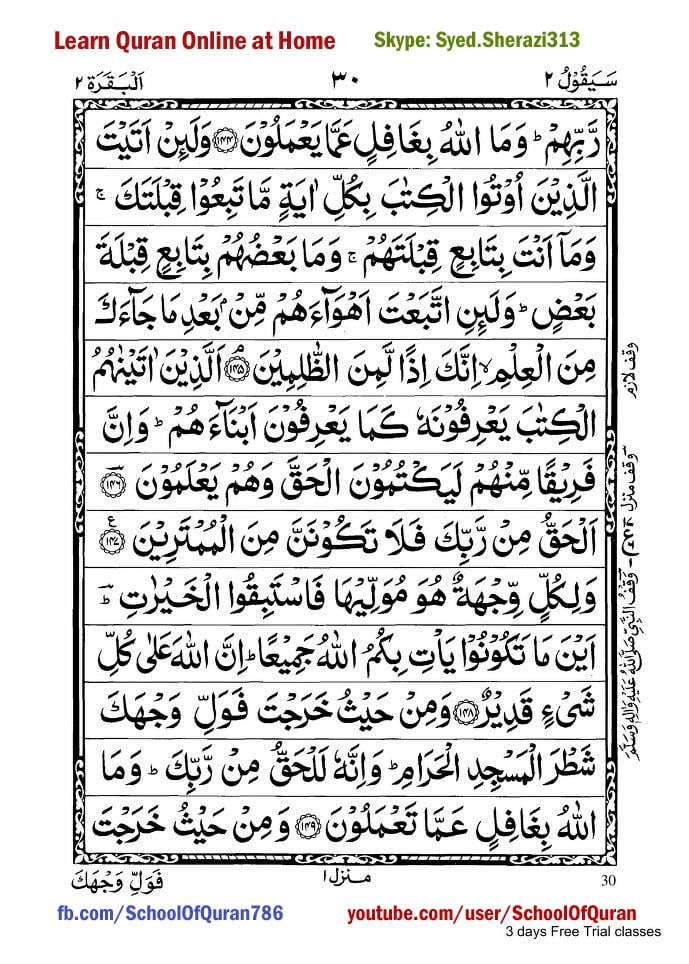 Learn Quran Online at Home Skype: Syed.Sherazi313
سَيَقُوْلُ ٢ ٣٠ اَلْبَقَرَة ٢
رَّبِّهِمْ ؕ وَمَا اللّٰهُ بِغَافِلٍ عَمَّا يَعْمَلُوْنَ ﴿١٤٤﴾ وَلَىِٕنْ اَتَيْتَ
الَّذِيْنَ اُوْتُوا الْكِتٰبَ بِكُلِّ اٰيَةٍ مَّا تَبِعُوْا قِبْلَتَكَ ۚ
وَمَاۤ اَنْتَ بِتَابِعٍ قِبْلَتَهُمْ ۚ وَمَا بَعْضُهُمْ بِتَابِعٍ قِبْلَةَ
بَعْضٍ ؕ وَلَىِٕنِ اتَّبَعْتَ اَهْوَآءَهُمْ مِّنْۢ بَعْدِ مَا جَآءَكَ
مِنَ الْعِلْمِ ۙ اِنَّكَ اِذًا لَّمِنَ الظّٰلِمِيْنَ ﴿١٤٥﴾ۘ اَلَّذِيْنَ اٰتَيْنٰهُمُ
الْكِتٰبَ يَعْرِفُوْنَهٗ كَمَا يَعْرِفُوْنَ اَبْنَآءَهُمْ ؕ وَاِنَّ
فَرِيْقًا مِّنْهُمْ لَيَكْتُمُوْنَ الْحَقَّ وَهُمْ يَعْلَمُوْنَ ﴿١٤٦﴾
اَلْحَقُّ مِنْ رَّبِّكَ فَلَا تَكُوْنَنَّ مِنَ الْمُمْتَرِيْنَ ﴿١٤٧﴾ ع
وَلِكُلٍّ وِّجْهَةٌ هُوَ مُوَلِّيْهَا فَاسْتَبِقُوا الْخَيْرٰتِ ؕ
اَيْنَ مَا تَكُوْنُوْا يَاْتِ بِكُمُ اللّٰهُ جَمِيْعًا ؕ اِنَّ اللّٰهَ عَلٰى كُلِّ
شَىْءٍ قَدِيْرٌ ﴿١٤٨﴾ وَمِنْ حَيْثُ خَرَجْتَ فَوَلِّ وَجْهَكَ
شَطْرَ الْمَسْجِدِ الْحَرَامِ ؕ وَاِنَّهٗ لَلْحَقُّ مِنْ رَّبِّكَ ؕ وَمَا
اللّٰهُ بِغَافِلٍ عَمَّا تَعْمَلُوْنَ ﴿١٤٩﴾ وَمِنْ حَيْثُ خَرَجْتَ
وقف لازم
وقف منزل
وَقْفُ النَّبِيِّ صَلَّى اللّٰهُ عَلَيْهِ وَاٰلِهٖ وَسَلَّمَ
فَوَلِّ وَجْهَكَ منزل ١ 30
fb.com/SchoolOfQuran786 youtube.com/user/SchoolOfQuran
3 days Free Trial classes